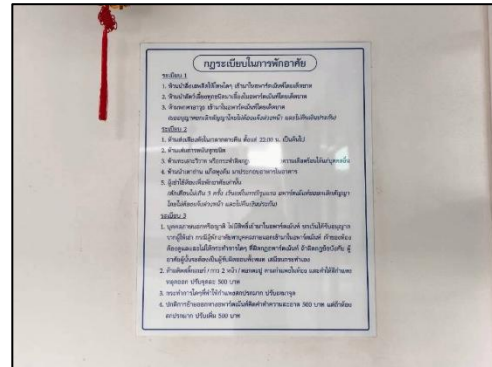 กฎระเบียบในการพักอาศัย
ระเบียบ 1
1. ห้ามนำสิ่งเสพติดใดๆ เข้ามาในอพาร์ตเม้นท์โดยเด็ดขาด
2. ห้ามนำสัตว์เลี้ยงทุกชนิดมาเลี้ยงในอพาร์ตเม้นท์โดยเด็ดขาด
3. ห้ามพกพาอาวุธ เข้ามาในอพาร์ตเม้นท์โดยเด็ดขาด
(ขออนุญาตยกเลิกสัญญาโดยไม่ต้องแจ้งล่วงหน้า และไม่คืนเงินประกัน)
ระเบียบ 2
1. ห้ามส่งเสียงดังในเวลากลางคืน ตั้งแต่ 22.00 น. เป็นต้นไป
2. ห้ามเล่นการพนันทุกชนิด
3. ห้ามทะเลาะวิวาท หรือกระทำ ความเดือดร้อนให้แก่บุคคลอื่น
4. ห้ามนำเตาถ่าน แก๊สหุงต้ม มาประกอบอาหารในอาคาร
5. ผู้เช่าใช้ห้องเพื่อพักอาศัยเท่านั้น
(ตักเตือนไม่เกิน 3 ครั้ง อพาร์ตเม้นท์ขอยกเลิกสัญญา
โดยไม่ต้องแจ้งล่วงหน้า และไม่คืนเงินประกัน)
ระเบียบ 3
1. บุคคลภายนอกหรือญาติ ไม่มีสิทธิ์เข้ามาในอพาร์ตเม้นท์ ยกเว้นได้รับอนุญาต
จากผู้ให้เช่า กรณีผู้พักอาศัยพาบุคคลภายนอกเข้ามาในอพาร์ตเม้นท์ เจ้าของห้อง
ต้องดูแลและไม่ให้กระทำการใดๆ ที่ผิดกฎอพาร์ตเม้นท์ ถ้าผิดกฎข้อบังคับ ผู้
อาศัยผู้นั้นจะต้องเป็นผู้รับผิดชอบทั้งหมด เสมือนกระทำเอง
2. ห้ามติดสติ๊กเกอร์ / กาว 2 หน้า / ตอกตะปู
หลุดลอก ปรับจุดละ 500 บาท
3. กระทำการใดๆที่ทำให้กำแพงสกปรกมาก ปรับเหมาจุด
4. ปกติการย้ายออกทางอพาร์ตเม้นท์คิดค่าทำความสะอาด 500 บาท แต่ถ้าห้อง
สกปรกมาก ปรับเพิ่ม 500 บาท